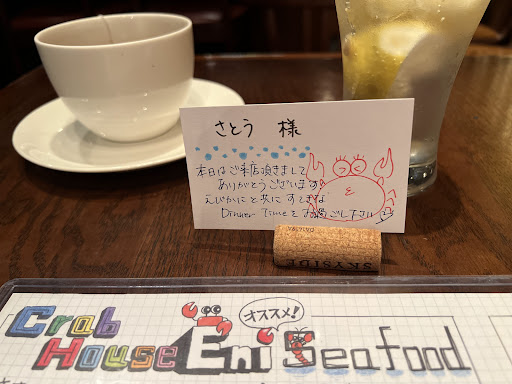 さとう 様
本日はご来店頂きまして
ありがとうございます
えびかにと共にすてきな
Dinner Timeをお過ごし下さい
SKYSIDE
オススメ!
Crab House Eni Seafood